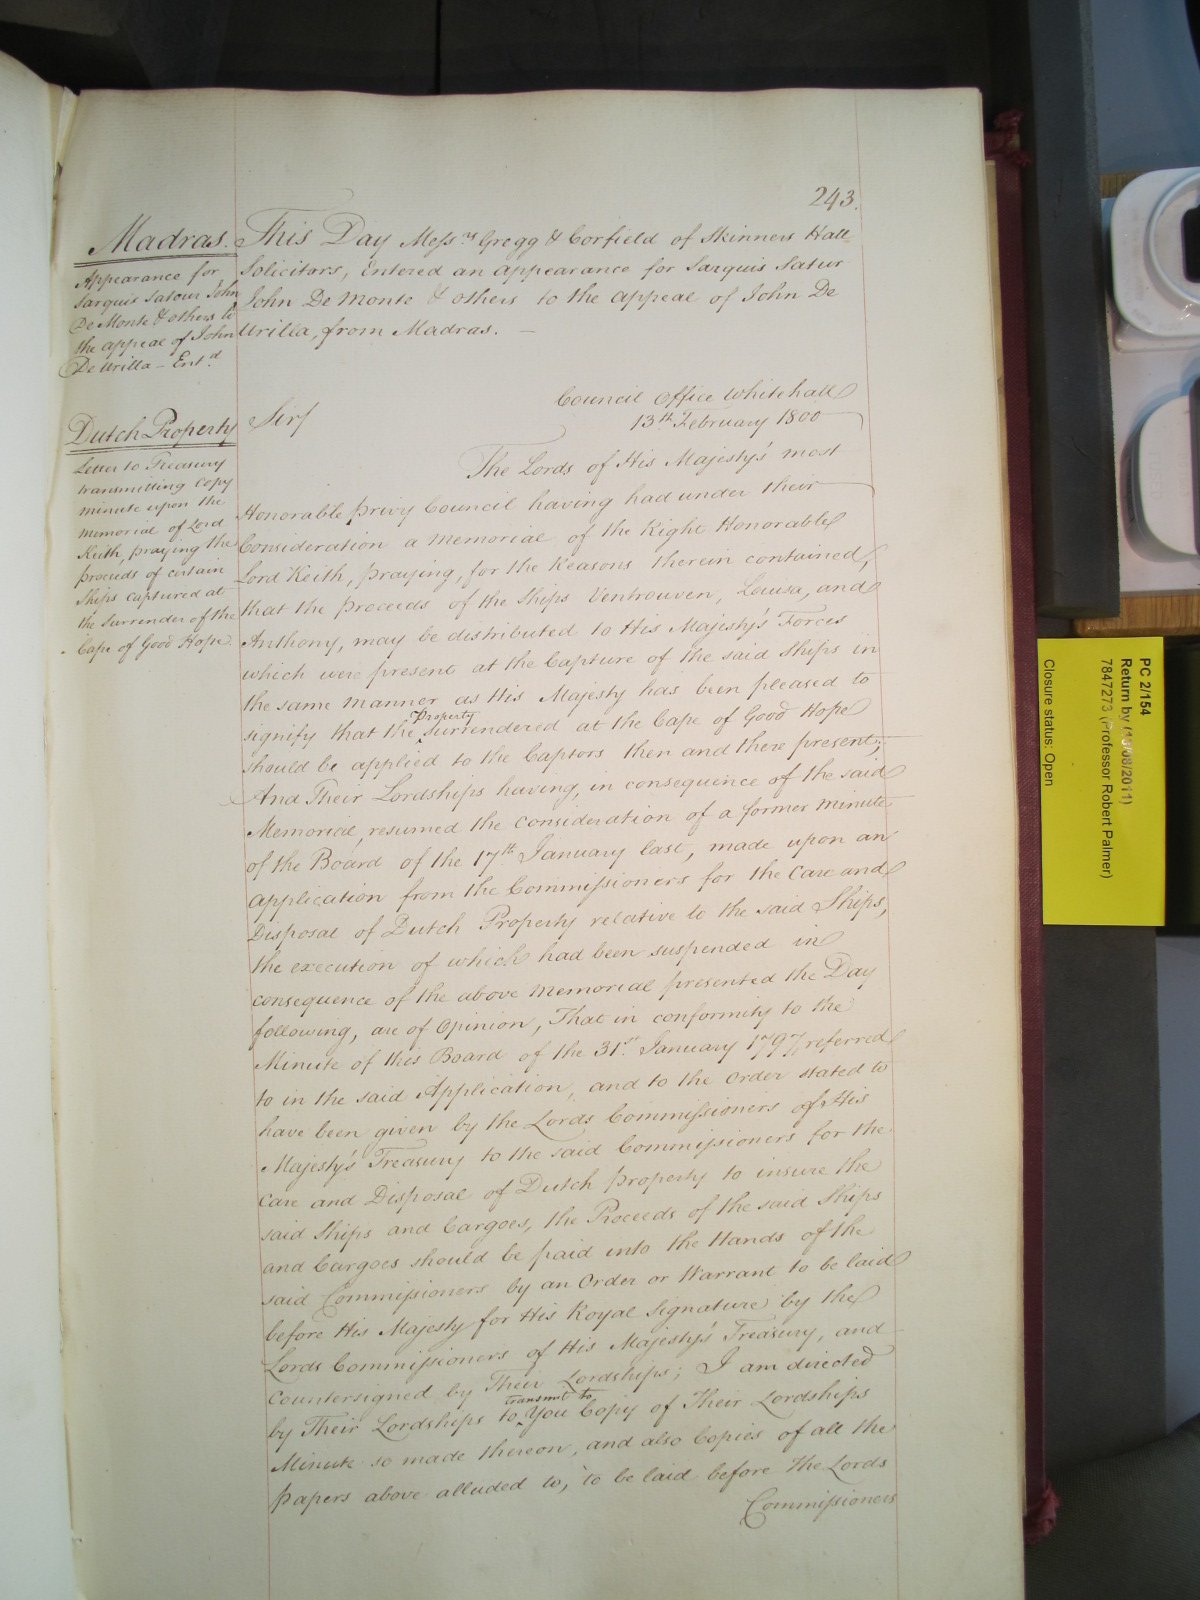 243.
Madras.
Appearance for
Sarquis Satour John
De Monte & others to
the appeal of John
De Urilla – Ent.d
This Day Mess.rs Gregg & Corfield of Skinners Hall
Solicitors, Entered an appearance for Sarquis Satur
John De Monte & others to the appeal of John De
Urilla, from Madras. –
Council Office Whitehall
13th February 1800
Dutch Property
Letter to Treasury
transmitting Copy
minute upon the
memorial of Lord
Keith, praying the
proceeds of certain
Ships captured at
the Surrender of the
Cape of Good Hope.
Sir/
The Lords of His Majesty's most
Honorable privy Council having had under their
Consideration a Memorial of the Right Honorable
Lord Keith, praying, for the Reasons therein contained,
that the proceeds of the Ships Ventrouven, Louisa, and
Anthony, may be distributed to His Majesty's Forces
which were present at the Capture of the said Ships in
the same manner as His Majesty has been pleased to
signify that the ^property surrendered at the Cape of Good Hope
should be applied to the Captors then and there present;
And Their Lordships having, in consequence of the said
Memorial, resumed the consideration of a former minute
of the Board of the 17th January last, made upon an
application from the Commissioners for the Care and
Disposal of Dutch Property relative to the said Ships,
the execution of which had been suspended in
consequence of the above Memorial presented the Day
following, are of Opinion, That in conformity to the
Minute of this Board of the 31st January 1797, referred
to in the said Application, and to the Order stated to
have been given by the Lords Commissioners of His
Majesty's Treasury to the said Commissioners for the
Care and Disposal of Dutch property to insure the
said Ships and Cargoes, the Proceeds of the said Ships
and Cargoes should be paid into the Hands of the
said Commissioners by an Order or Warrant to be laid
before His Majesty for His Royal Signature by the
Lords Commissioners of His Majesty's Treasury, and
Countersigned by Their Lordships; I am directed
by Their Lordships to ^transmit to You Copy of Their Lordships
Minute so made thereon, and also Copies of all the
papers above alluded to, to be laid before the Lords
Commissioners
PC 2/154
Return by (13/08/2011)
7847273 (Professor Robert Palmer)
Closure status: Open